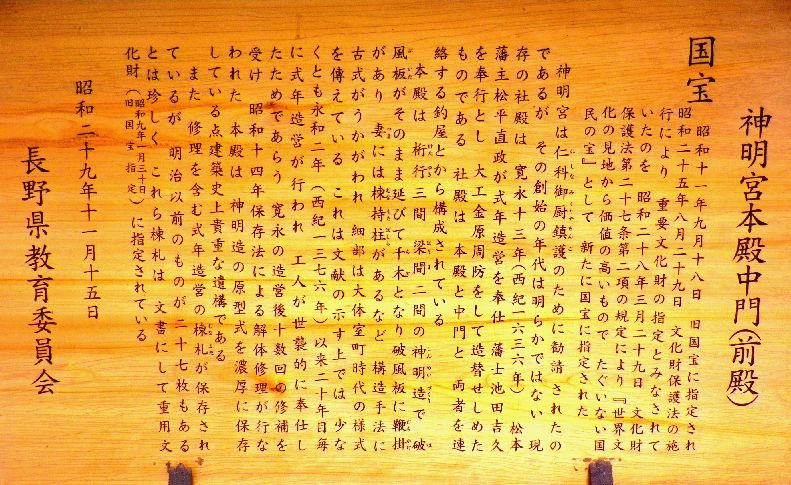 国宝
神明宮本殿中門(前殿)
昭和十一年九月十八日 旧国宝に指定され
昭和二十五年八月二十九日 文化財保護法の施
行により 重要文化財の指定とみなされて
いたのを 昭和二十八年三月二十九日 文化財
保護法第二十七条第二項の規定により『世界文
化の見地から価値の高いもので たぐいない国
民の宝』として 新たに国宝に指定された
神明宮は仁科御厨鎮護のために勧請されたの
であるが その創始の年代は明らかではない 現
存の社殿は 寛永十三年(西紀一六三六年) 松本
藩主松平直政が式年造営を奉仕 藩士池田吉久
を奉行とし 大工金原周防をして造替せしめた
ものである 社殿は 本殿と中門と 両者を連
絡する釣屋とから構成されている
本殿は 桁行三間 梁間二間の神明造で 破
風板がそのまま延びて千木となり破風板に鞭掛
があり 妻には棟持柱があるなど 構造手法に
古式がうかがわれ 細部は大体室町時代の様式
を傳えている これは文献の示す上では 少な
くとも永和二年(西紀一三七六年)以来二十年目毎
に式年造営が行われ 工人が世襲的に奉仕し
たためであらう 寛永の造営後十数回の修補を
受け 昭和十四年保存法による解体修理が行な
われた 本殿は 神明造の原型式を濃厚に保存
している点建築史上貴重な遺構である
また 修理を含む式年造営の棟札が保存され
ているが 明治以前のものが二十七枚もある
とは珍しく これら棟札は 文書にして重用文
化財(昭和九年一月三十日旧国宝指定)に指定されている
昭和二十九年十一月十五日
長野県教育委員会